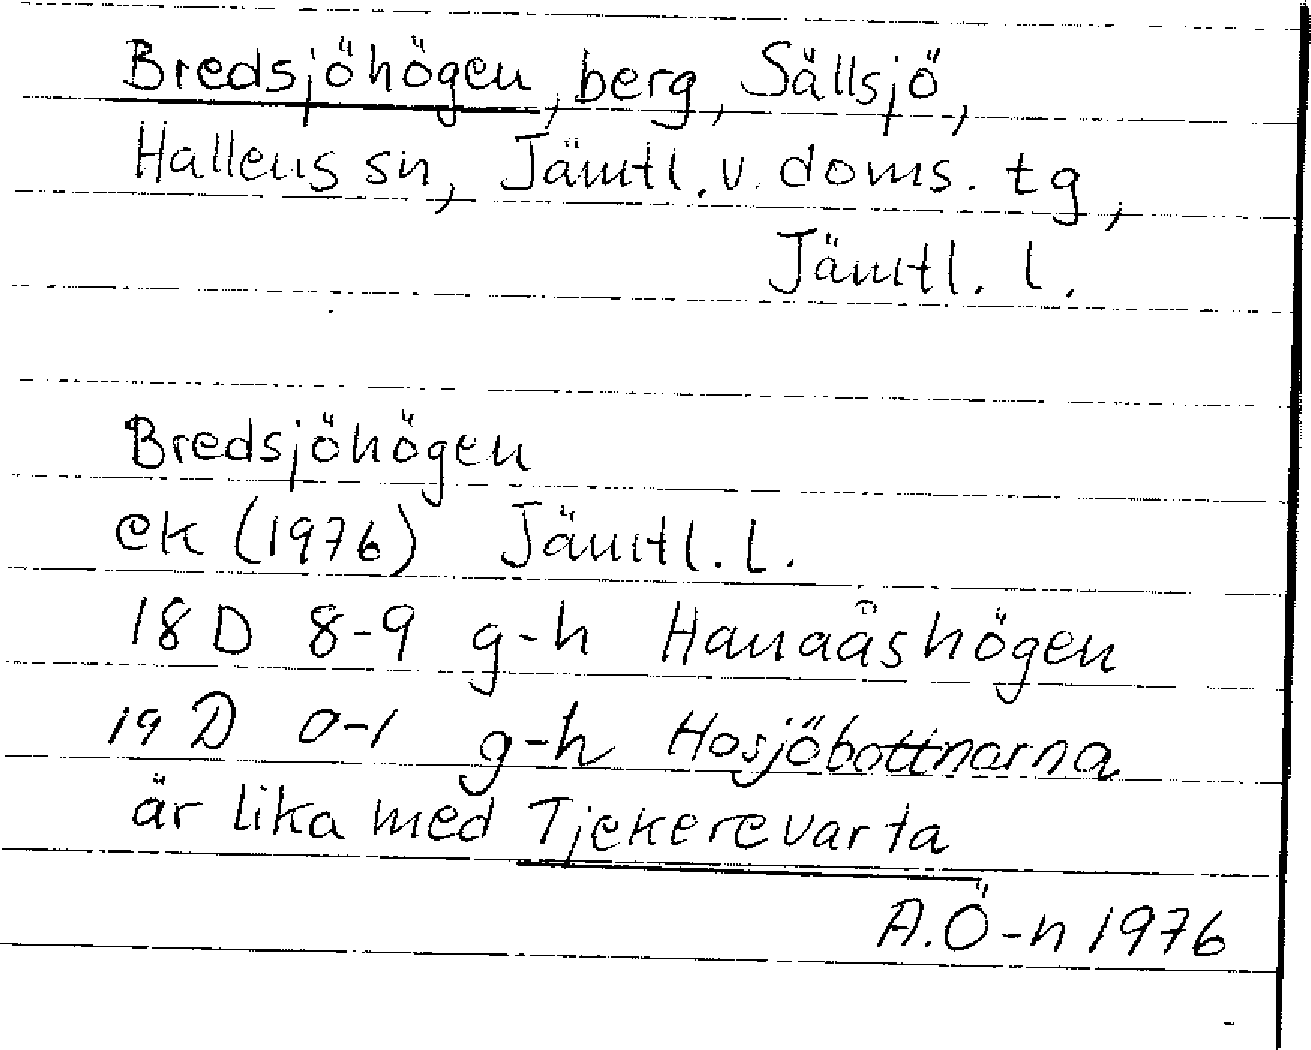 Bredsjöhögen, berg, Sällsjö,
Hallens sn, Jämtl. v. doms. tg,
Jämtl. l.
Bredsjöhögen
ek (1976) Jämtl. l.
18 D 8-9 g-h Hanaåshögen
19 D 0-1 g-h Hosjöbottnarna
är lika med Tjekerevarta
A.Ö-n 1976